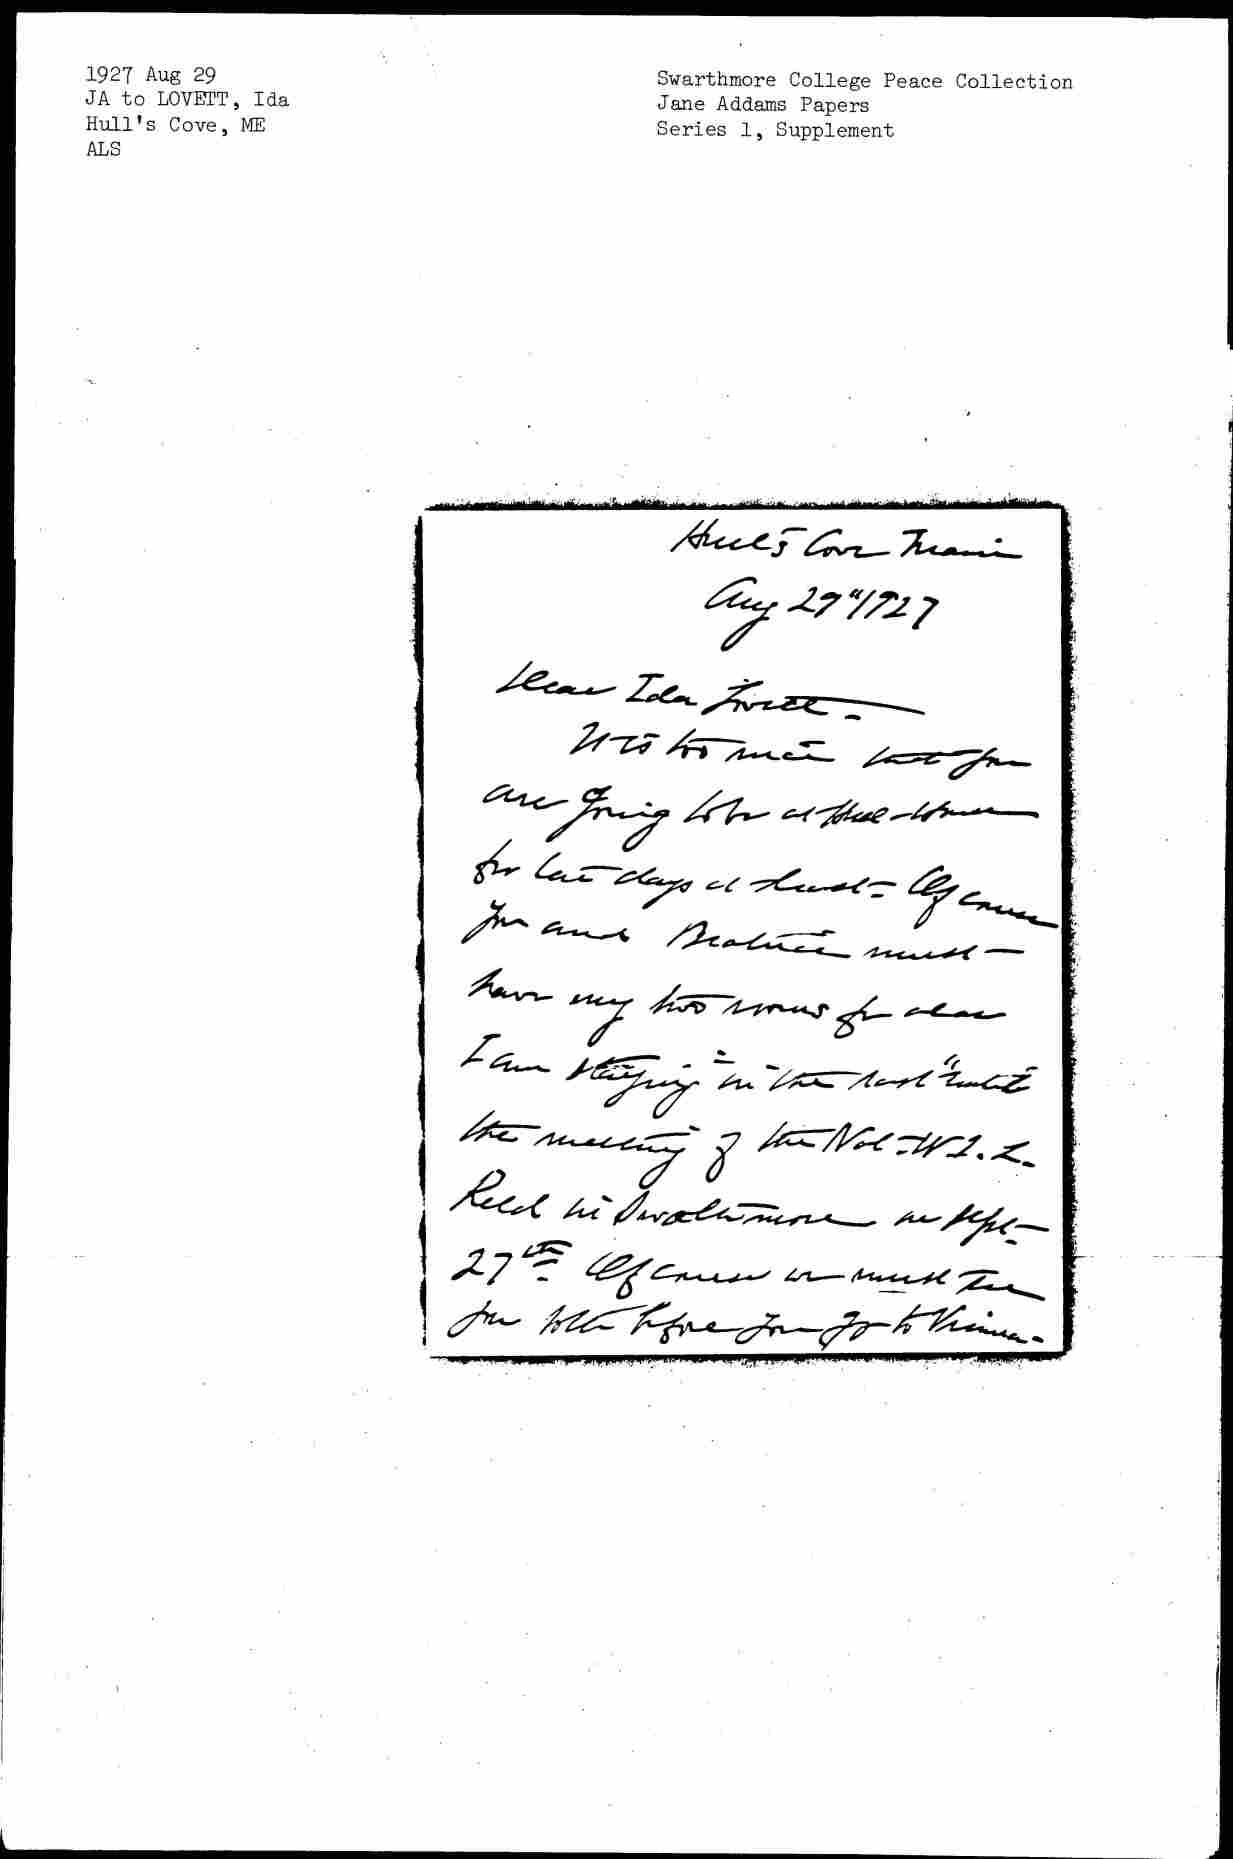 1927 Aug 29
JA to LOVETT, Ida
Hull's Cove, ME
ALS
Swarthmore College Peace Collection
Jane Addams Papers
Series 1, Supplement
Hull's Cove Maine
Aug 29"/1927
Dear Ida Lovett -
It is too nice that you
are going to be at Hull-House
for days at least - Of course
you and Beatrice must -
have my two rooms for alas
I am staying "in the east" until
the meeting of the Nat - W. I. L.
Held in Swarthmore on Sept -
27th Of course we must see
you both before you go to Vienna -